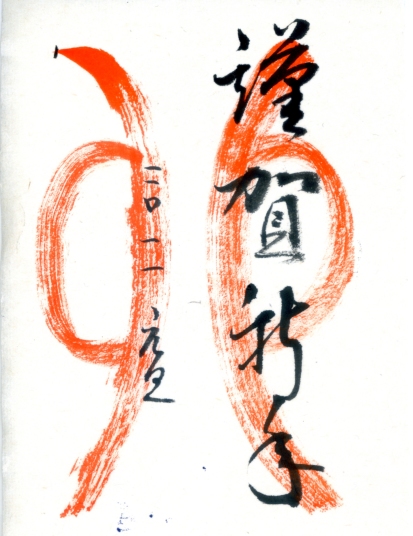 謹賀新年
二〇一一 元旦